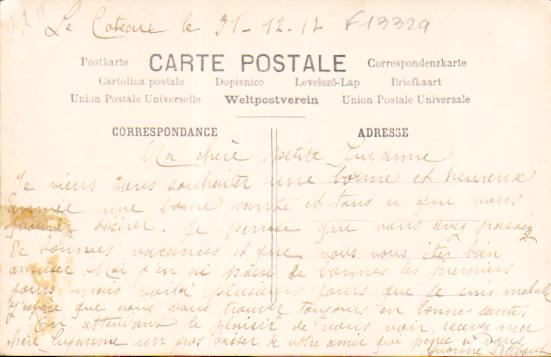 Le Coteau le 31-12-12 F13329
Postkarte CARTE POSTALE Correspondenzkarte
Cartolina postale Dopisnice Levelező-Lap Briefkaart
Union Postale Universelle Weltpostverein Union Postale Universale
CORRESPONDANCE ADRESSE
Ma chère petite Suzanne
Je viens vous souhaiter une bonne et heureux
année une bonne santé et tous ce que vous
désirer. Je pense que vous avez passez
de bonnes vacances et que vous vous êtes bien
amusée Moi j'en ai passé de bonnes les premiers
jours mais voilà plusieurs jours que je suis malade
J'espère que vous vous trouvez toujours en bonne santé.
En attendant le plaisir de vous voir, recevez ma
chère Suzanne un gros baiser de votre amie qui pense à vous
Yvonne